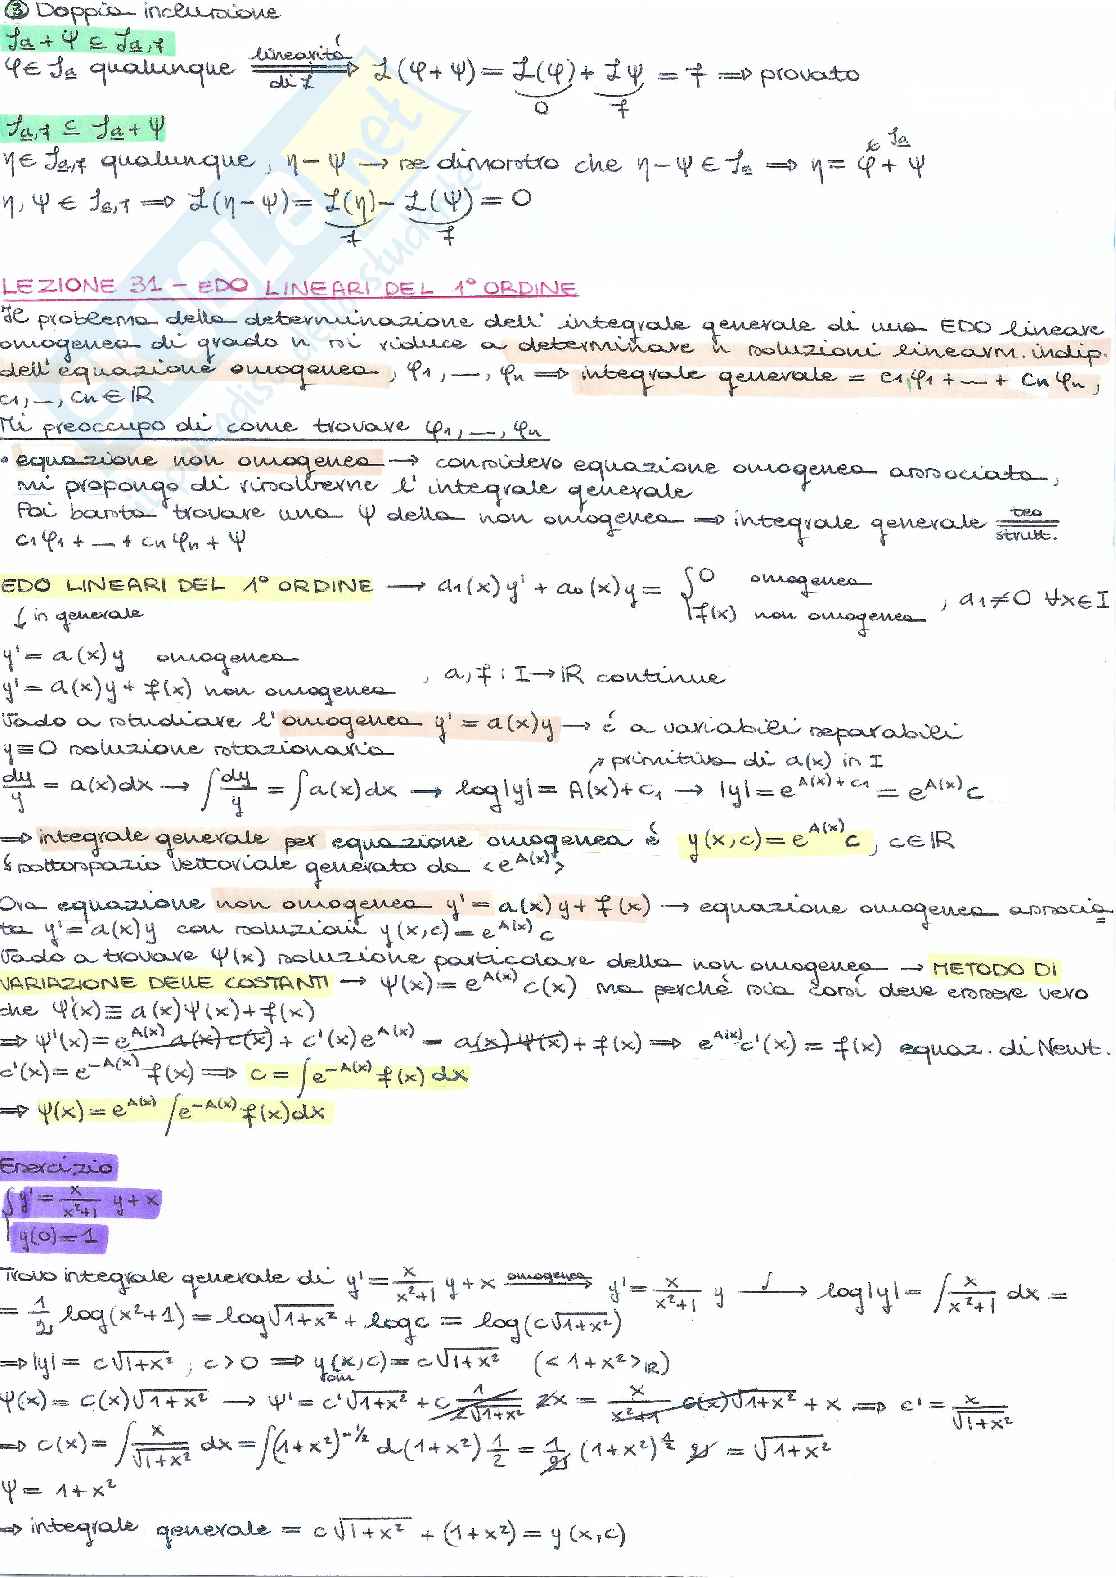 ③ Doppia inclusione
Ja + Ψ ⊆ Ja,f
φ ∈ Ja qualunque ══linearità di L══⇒ L(φ+Ψ) = L(φ) + LΨ = f ⇒ provato
0 f
Ja,f ⊆ Ja + Ψ
η ∈ Ja,f qualunque, η - Ψ → se dimostro che η - Ψ ∈ Ja ⇒ η = φ + Ψ
∈ Ja
η, Ψ ∈ Ja,f ⇒ L(η-Ψ) = L(η) - L(Ψ) = 0
f f
LEZIONE 31 - EDO LINEARI DEL 1° ORDINE
Il problema della determinazione dell'integrale generale di una EDO lineare
omogenea di grado n si riduce a determinare n soluzioni linearm. indip.
dell'equazione omogenea, φ1, ..., φn ⇒ integrale generale = c1φ1 + ... + cnφn,
c1, ..., cn ∈ IR
Mi preoccupo di come trovare φ1, ..., φn
• equazione non omogenea → considero equazione omogenea associata,
mi propongo di risolverne l'integrale generale
Poi basta trovare una Ψ della non omogenea ⇒ integrale generale teo strutt.
c1φ1 + ... + cnφn + Ψ
EDO LINEARI DEL 1° ORDINE → a1(x)y' + a0(x)y = { 0 omogenea
f(x) non omogenea , a1 ≠ 0 ∀x ∈ I
↓ in generale
y' = a(x)y omogenea
y' = a(x)y + f(x) non omogenea , a, f : I → IR continue
Vado a studiare l'omogenea y' = a(x)y → è a variabili separabili
y ≡ 0 soluzione stazionaria
↗ primitiva di a(x) in I
dy/y = a(x)dx → ∫dy/y = ∫a(x)dx → log|y| = A(x) + c1 → |y| = e^(A(x)+c1) = e^A(x) c
⇒ integrale generale per equazione omogenea è y(x,c) = e^A(x) c, c ∈ IR
è sottospazio vettoriale generato da <e^A(x)>
Ora equazione non omogenea y' = a(x)y + f(x) → equazione omogenea associa-
ta y' = a(x)y con soluzioni y(x,c) = e^A(x) c
Vado a trovare Ψ(x) soluzione particolare della non omogenea → METODO DI
VARIAZIONE DELLE COSTANTI → Ψ(x) = e^A(x) c(x) ma perché sia così deve essere vero
che Ψ'(x) ≡ a(x)Ψ(x) + f(x)
⇒ Ψ'(x) = e^A(x) a(x) c(x) + c'(x)e^A(x) = a(x)Ψ(x) + f(x) ⇒ e^A(x) c'(x) = f(x) equaz. di Newt.
c'(x) = e^-A(x) f(x) ⇒ c = ∫e^-A(x) f(x) dx
⇒ Ψ(x) = e^A(x) ∫e^-A(x) f(x)dx
Esercizio
{ y' = x/(x²+1) y + x
y(0) = 1
Trovo integrale generale di y' = x/(x²+1) y + x ──omogenea──→ y' = x/(x²+1) y ──∫──→ log|y| = ∫ x/(x²+1) dx =
= 1/2 log(x²+1) = log√(1+x²) + log c = log(c√(1+x²))
⇒ |y| = c√(1+x²), c > 0 ⇒ y(x,c) = c√(1+x²) (<1+x²>IR)
om
Ψ(x) = c(x)√(1+x²) → Ψ' = c'√(1+x²) + c 1/(2√(1+x²)) 2x = x/(x²+1) c(x)√(1+x²) + x ⇒ c' = x/√(1+x²)
⇒ c(x) = ∫ x/√(1+x²) dx = ∫(1+x²)^-1/2 d(1+x²) 1/2 = 1/2 (1+x²)^1/2 2 = √(1+x²)
Ψ = 1+x²
⇒ integrale generale = c√(1+x²) + (1+x²) = y(x,c)